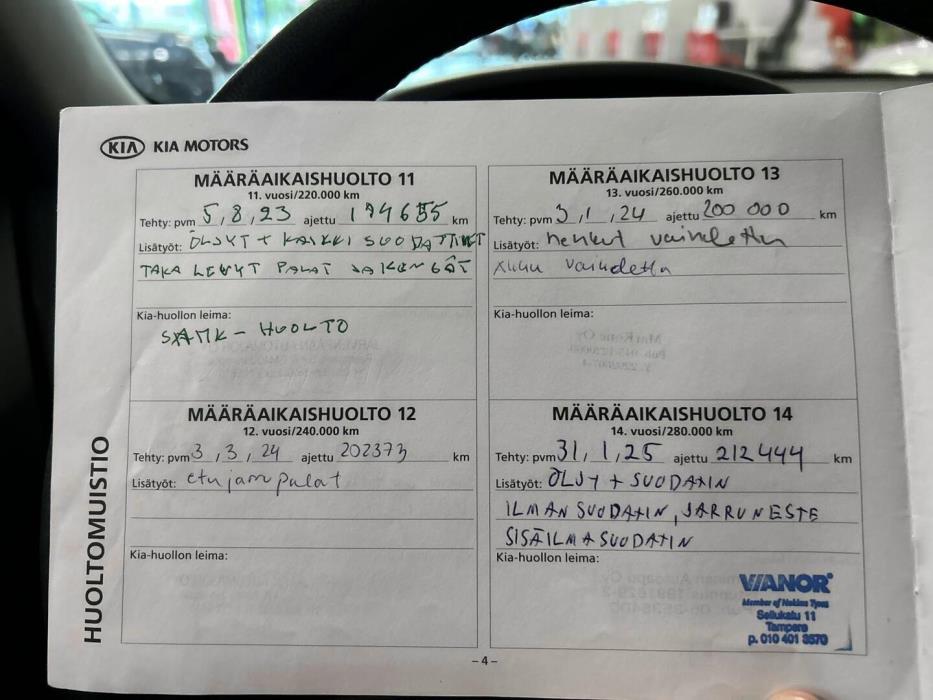 KIA KIA MOTORS
MÄÄRÄAIKAISHUOLTO 11
11. vuosi/220.000 km
Tehty: pvm 5,8,23 ajettu 194655 km
Lisätyöt: ÖLJYT + KAIKKI SUODATTIMET
TAKA LEVYT PALAT JA KENGÄT
Kia-huollon leima:
SAMK-HUOLTO
MÄÄRÄAIKAISHUOLTO 13
13. vuosi/260.000 km
Tehty: pvm 3,1,24 ajettu 200 000 km
Lisätyöt: henkut vaihdettu
Akku vaihdettu
Kia-huollon leima:
MÄÄRÄAIKAISHUOLTO 12
12. vuosi/240.000 km
Tehty: pvm 3,3,24 ajettu 202373 km
Lisätyöt: etujarrupalat
Kia-huollon leima:
MÄÄRÄAIKAISHUOLTO 14
14. vuosi/280.000 km
Tehty: pvm 31,1,25 ajettu 212444 km
Lisätyöt: ÖLJYT + SUODATIN
ILMAN SUODATIN, JARRUNESTE
SISÄILMASUODATIN
Kia-huollon leima:
VIANOR
Member of Nokian Tyres
Sellukatu 11
Tampere
p. 010 401 3570
HUOLTOMUISTIO
– 4 –